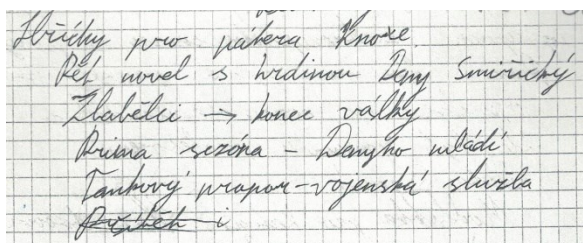 Hříchy pro pátera Knoxe
Pět novel s hrdinou Dany Smiřický
Zbabělci → konec války
Prima sezóna - Danyho mládí
Tankový prapor - vojenská služba
Příběh i